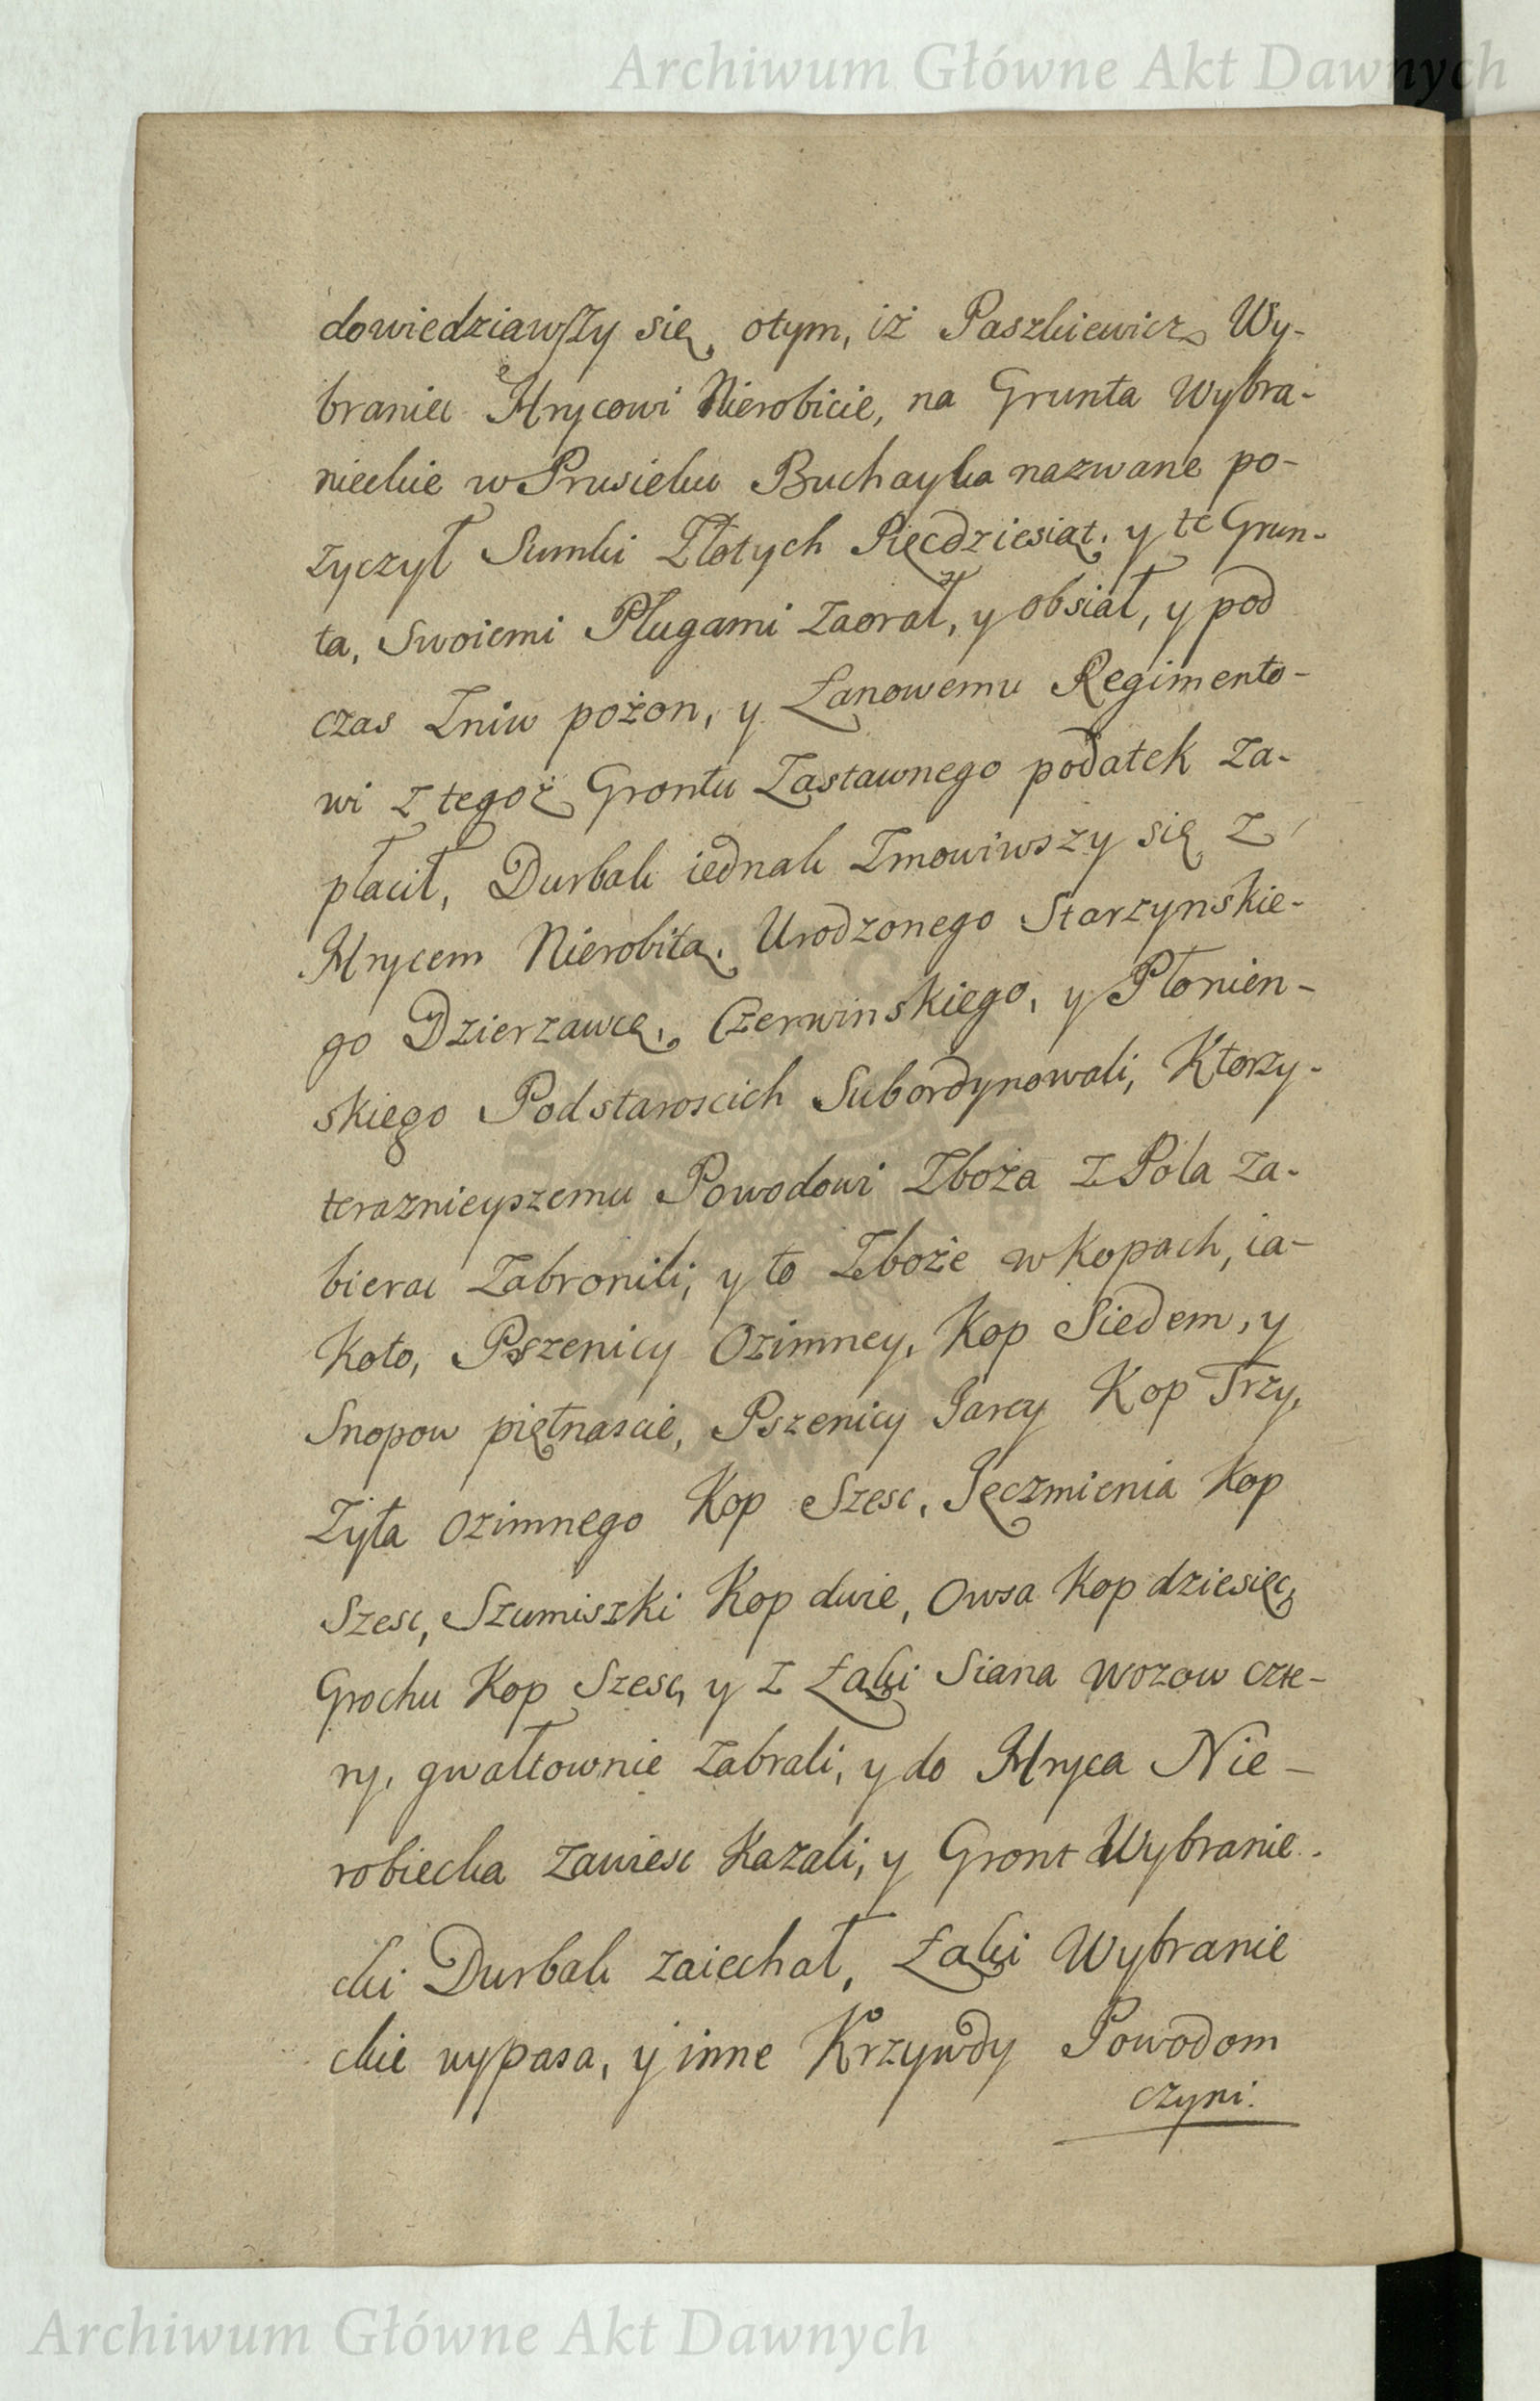 Archiwum Główne Akt Dawnych
dowiedziawszy się, otym, iż Paszkiewicz Wy-
braniec Hrycowi Nierobicie, na Grunta Wybra-
nieckie w Prusieku Buchayka nazwane po-
życzył Sumki Złotych Pięcdziesiąt, y te Grun-
ta, Swoiemi Pługami zaorał, y obsiał, y pod
czas Zniw pożon, y Łanowemu Regimento-
wi z tegoż Grontu Zastawnego podatek za-
płacił, Durbak iednak Zmowiwszy się z
Hrycem Nierobitą, Urodzonego Starzynskie-
go Dzierzawcę, Czerwinskiego, y Płonien-
skiego Podstaroscich Subordynowali, Ktorzy-
teraznieyszemu Powodowi Zboża z Pola za-
bierac Zabronili, y to Zboże w kopach, ia-
Koto, Pszenicy Ozimney, Kop Siedem, y
Snopow piętnascie, Pszenicy Jarey Kop Trzy,
Zyta ozimnego Kop Szesc, Jęczmienia Kop
Szesc, Szumiszki Kop dwie, Owsa Kop dziesięc,
Grochu Kop Szesc, y z Łąki Siana wozow czte-
ry, gwałtownie zabrali, y do Hryca Nie-
robiecka zawiesc Kazali, y Gront Wybranie-
cki Durbak zaiechał, Łąki Wybranie
ckie wypasa, y inne Krzywdy Powodom
czyni.
Archiwum Główne Akt Dawnych